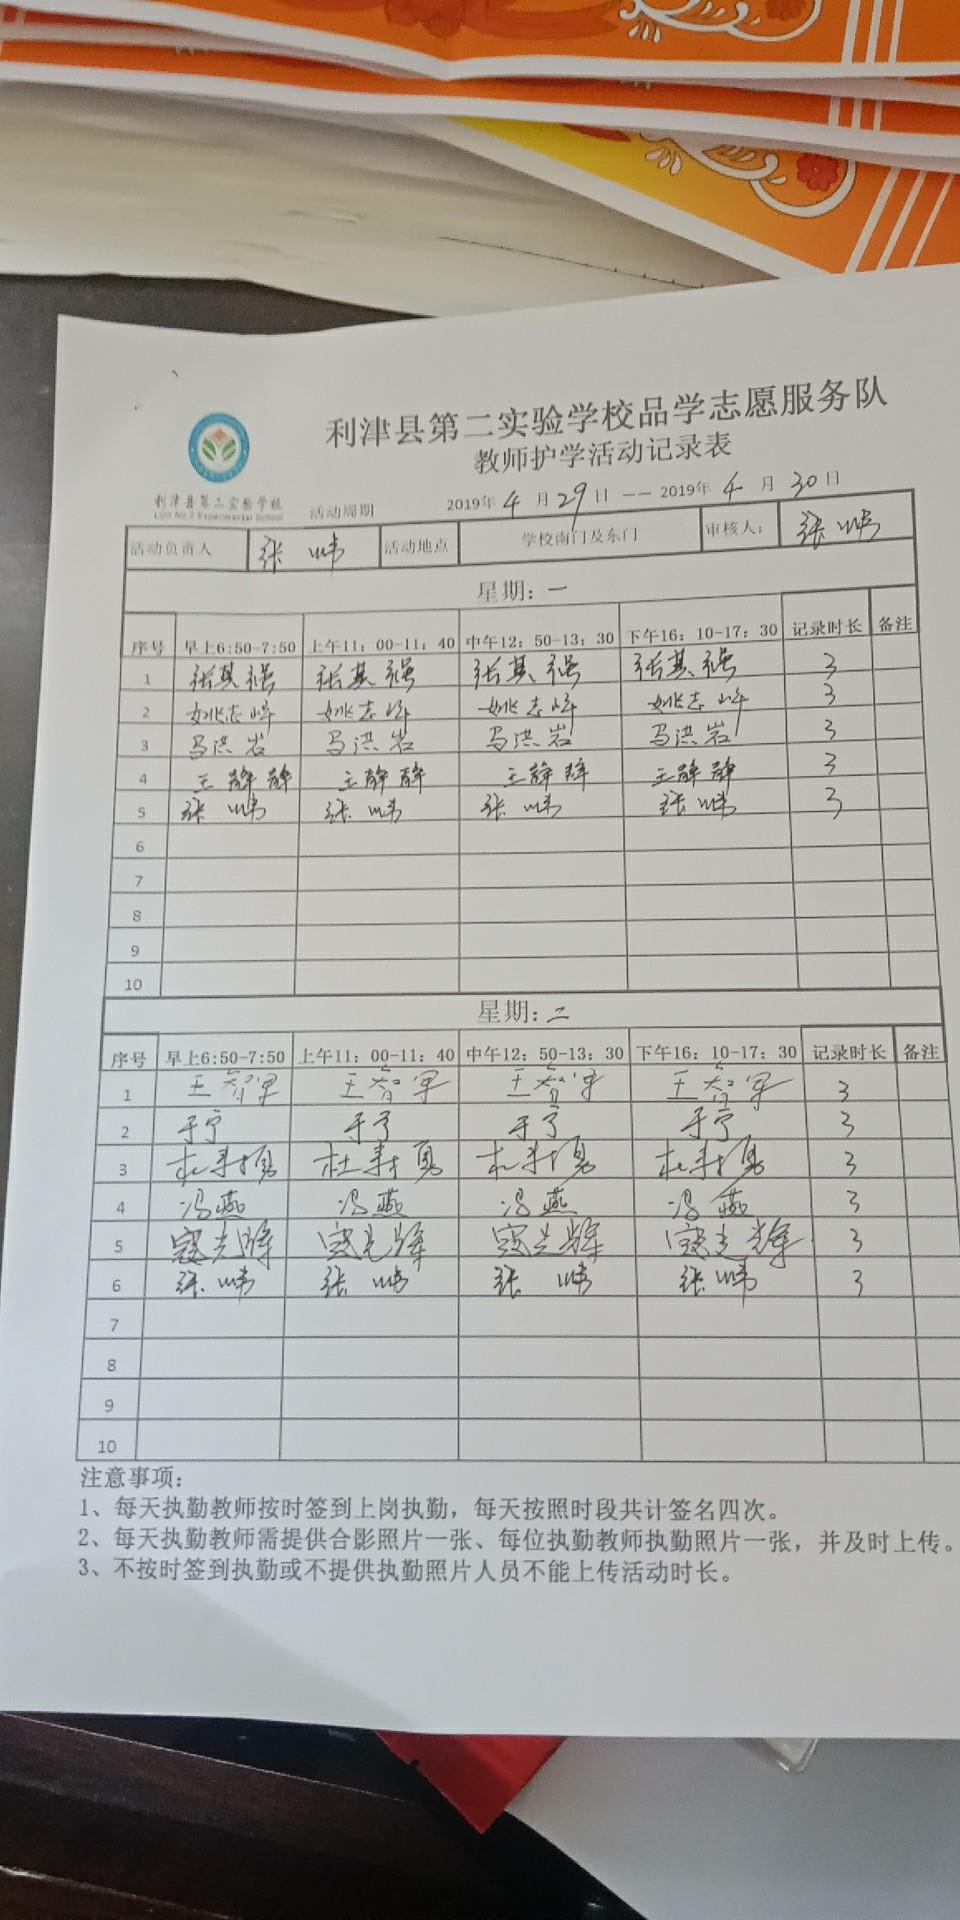 利津县第二实验学校品学志愿服务队
教师护学活动记录表
利津县第二实验学校
Lijin No.2 Experimental School
活动周期 2019年 4 月 29 日 -- 2019年 4 月 30 日
活动负责人 张 炜 活动地点 学校南门及东门 审核人: 张 炜
星期: 一
序号 早上6:50-7:50 上午11: 00-11: 40 中午12: 50-13: 30 下午16: 10-17: 30 记录时长 备注
1 张其强 张其强 张其强 张其强 3
2 姚志峰 姚志峰 姚志峰 姚志峰 3
3 马洪岩 马洪岩 马洪岩 马洪岩 3
4 王静静 王静静 王静静 王静静 3
5 张 炜 张 炜 张 炜 张 炜 3
6
7
8
9
10
星期: 二
序号 早上6:50-7:50 上午11: 00-11: 40 中午12: 50-13: 30 下午16: 10-17: 30 记录时长 备注
1 王智军 王智军 王智军 王智军 3
2 于宁 于宁 于宁 于宁 3
3 杜寿勇 杜寿勇 杜寿勇 杜寿勇 3
4 冯燕 冯燕 冯燕 冯燕 3
5 寇光辉 寇光辉 寇光辉 寇光辉 3
6 张 炜 张 炜 张 炜 张 炜 3
7
8
9
10
注意事项:
1、每天执勤教师按时签到上岗执勤，每天按照时段共计签名四次。
2、每天执勤教师需提供合影照片一张、每位执勤教师执勤照片一张，并及时上传。
3、不按时签到执勤或不提供执勤照片人员不能上传活动时长。